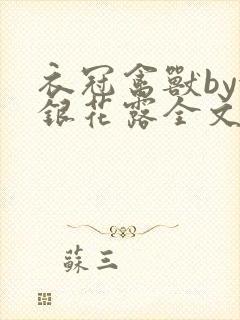 衣冠禽獸by
銀花露全文
蘇三